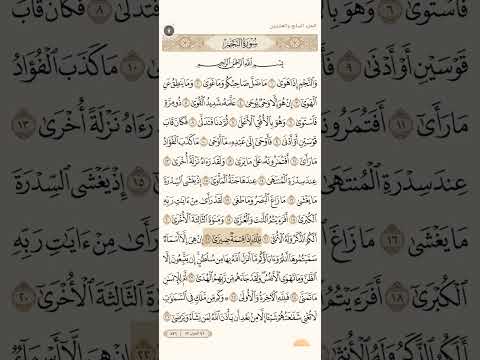 الجزء السابع والعشرين
سُورَةُ النَّجْمِ
بِسْمِ اللَّهِ الرَّحْمَٰنِ الرَّحِيمِ
وَالنَّجْمِ إِذَا هَوَىٰ ١ مَا ضَلَّ صَاحِبُكُمْ وَمَا غَوَىٰ ٢ وَمَا يَنطِقُ عَنِ
الْهَوَىٰ ٣ إِنْ هُوَ إِلَّا وَحْيٌ يُوحَىٰ ٤ عَلَّمَهُ شَدِيدُ الْقُوَىٰ ٥ ذُو مِرَّةٍ
فَاسْتَوَىٰ ٦ وَهُوَ بِالْأُفُقِ الْأَعْلَىٰ ٧ ثُمَّ دَنَا فَتَدَلَّىٰ ٨ فَكَانَ قَابَ
قَوْسَيْنِ أَوْ أَدْنَىٰ ٩ فَأَوْحَىٰ إِلَىٰ عَبْدِهِ مَا أَوْحَىٰ ١٠ مَا كَذَبَ الْفُؤَادُ
مَا رَأَىٰ ١١ أَفَتُمَارُونَهُ عَلَىٰ مَا يَرَىٰ ١٢ وَلَقَدْ رَءَاهُ نَزْلَةً أُخْرَىٰ ١٣
عِندَ سِدْرَةِ الْمُنتَهَىٰ ١٤ عِندَهَا جَنَّةُ الْمَأْوَىٰ ١٥ إِذْ يَغْشَى السِّدْرَةَ
مَا يَغْشَىٰ ١٦ مَا زَاغَ الْبَصَرُ وَمَا طَغَىٰ ١٧ لَقَدْ رَأَىٰ مِنْ ءَايَاتِ رَبِّهِ
الْكُبْرَىٰ ١٨ أَفَرَءَيْتُمُ اللَّاتَ وَالْعُزَّىٰ ١٩ وَمَنَوٰةَ الثَّالِثَةَ الْأُخْرَىٰ ٢٠
أَلَكُمُ الذَّكَرُ وَلَهُ الْأُنثَىٰ ٢١ تِلْكَ إِذًا قِسْمَةٌ ضِيزَىٰ ٢٢ إِنْ هِيَ إِلَّا أَسْمَاءٌ
سَمَّيْتُمُوهَا أَنتُمْ وَءَابَاؤُكُم مَّا أَنزَلَ اللَّهُ بِهَا مِن سُلْطَانٍ إِن يَتَّبِعُونَ إِلَّا
الظَّنَّ وَمَا تَهْوَى الْأَنفُسُ وَلَقَدْ جَاءَهُم مِّن رَّبِّهِمُ الْهُدَىٰ ٢٣ أَمْ لِلْإِنسَانِ
مَا تَمَنَّىٰ ٢٤ فَلِلَّهِ الْآخِرَةُ وَالْأُولَىٰ ٢٥ وَكَم مِّن مَّلَكٍ فِي السَّمَاوَاتِ
لَا تُغْنِي شَفَاعَتُهُمْ شَيْئًا إِلَّا مِن بَعْدِ أَن يَأْذَنَ اللَّهُ لِمَن يَشَاءُ وَيَرْضَىٰ ٢٦
٥٢٦